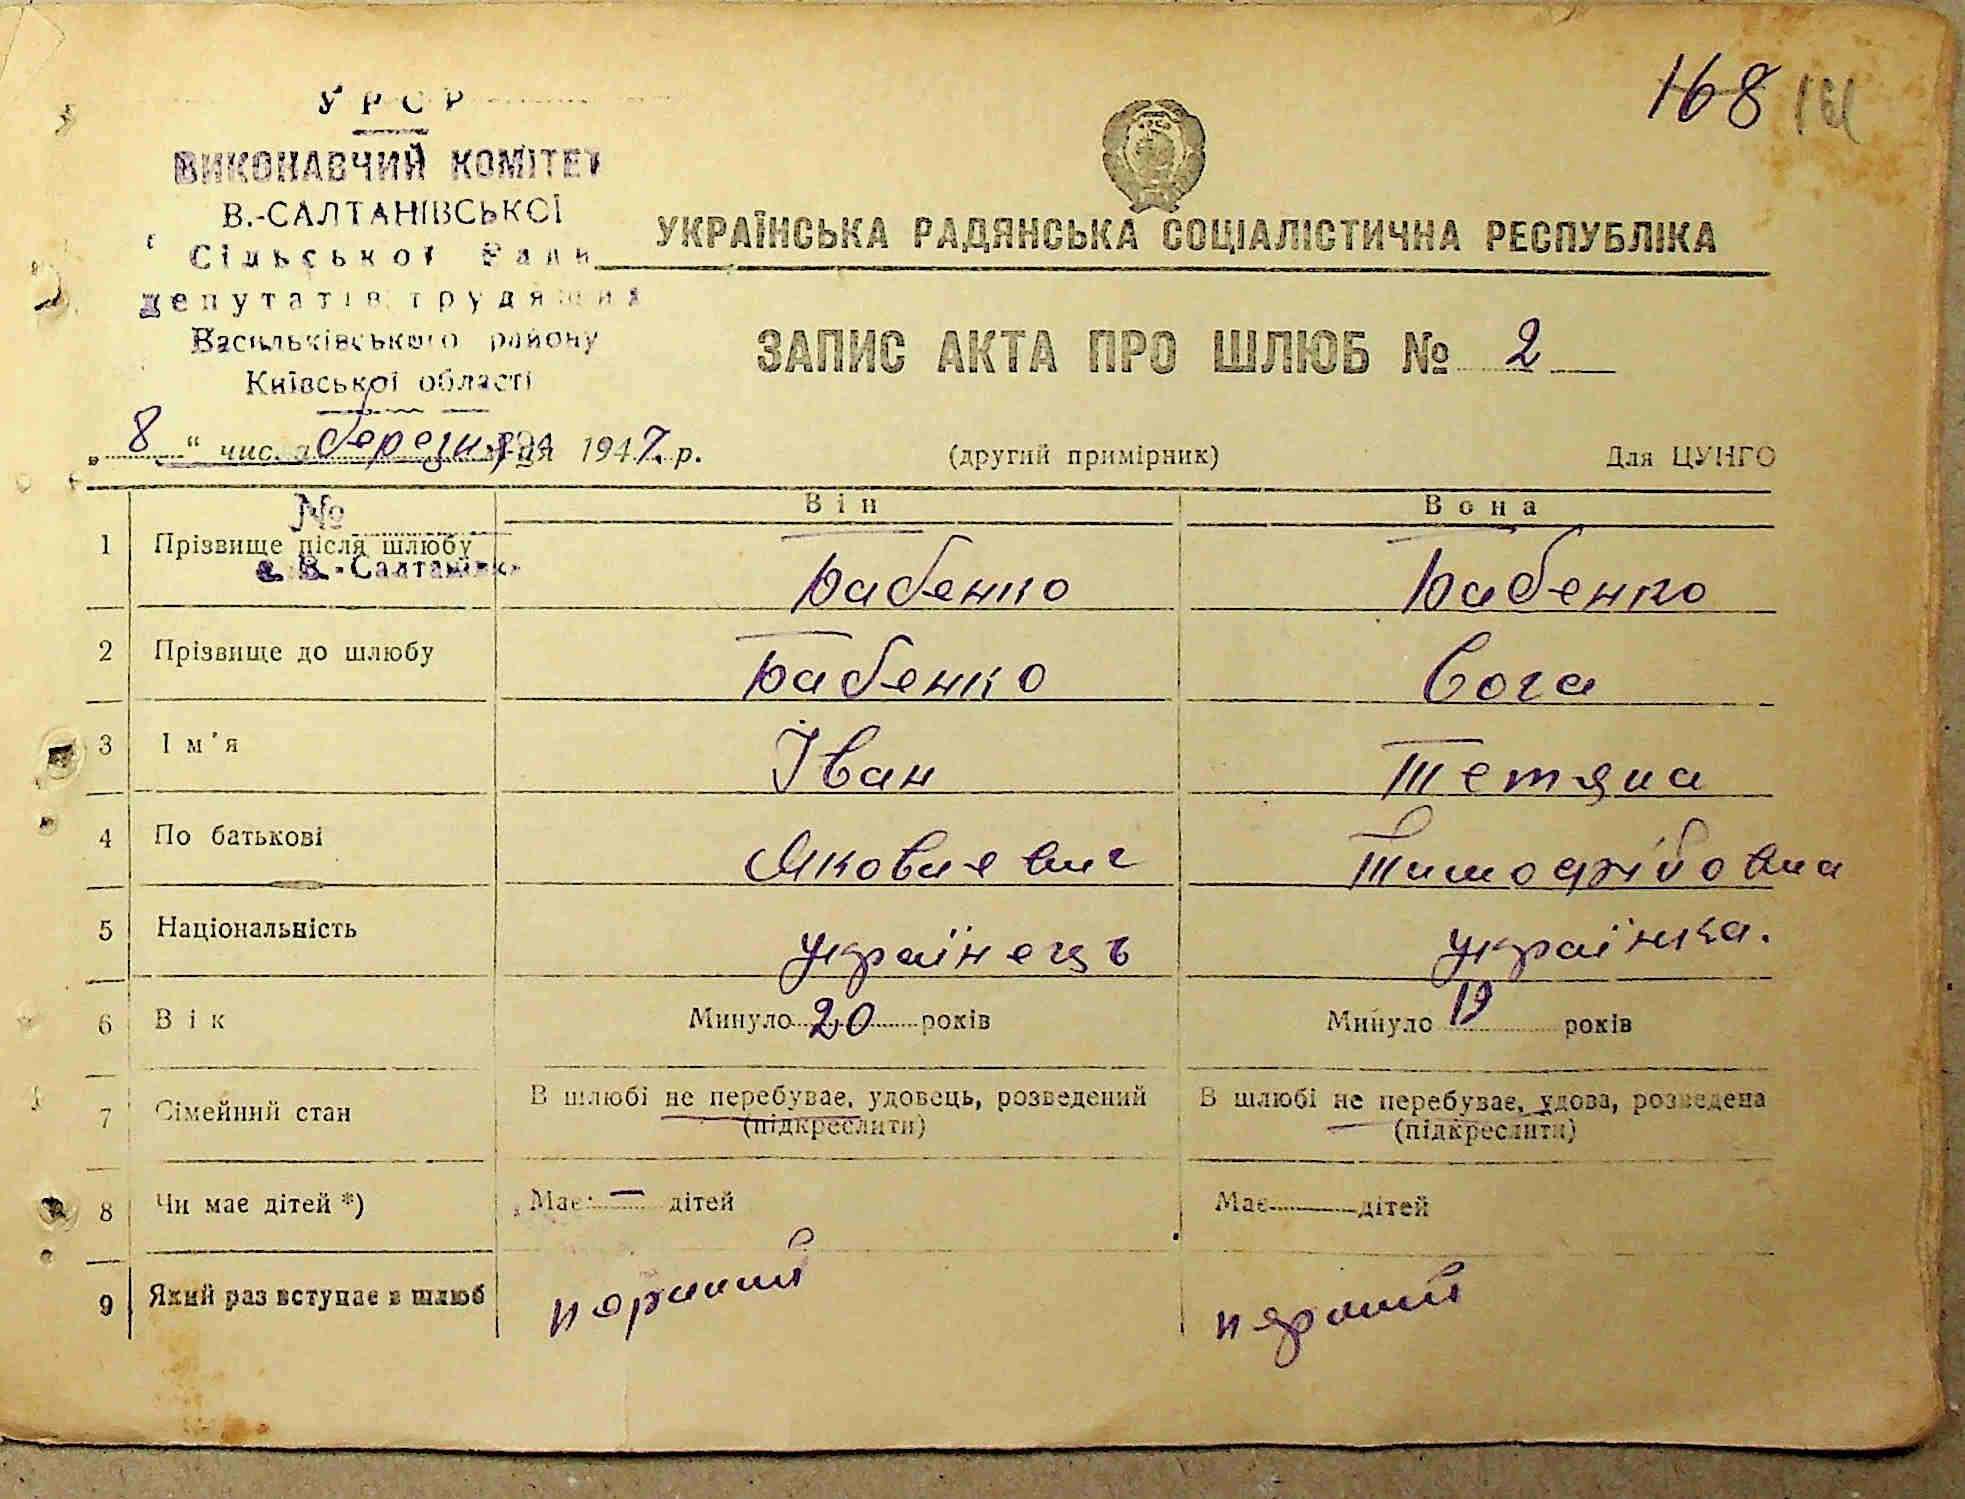 168
УРСР
ВИКОНАВЧИЙ КОМІТЕТ
В.-САЛТАНІВСЬКОЇ
Сільської Ради
депутатів трудящих
Васильківського району
Київської області
УКРАЇНСЬКА РАДЯНСЬКА СОЦІАЛІСТИЧНА РЕСПУБЛІКА
ЗАПИС АКТА ПРО ШЛЮБ № 2
„8“ числа березня 1947 р. (другий примірник) Для ЦУНГО
№ Він Вона
1 Прізвище після шлюбу Бабенко Бабенко
с. В.-Салтанівка
2 Прізвище до шлюбу Бабенко
3 Ім'я Іван Тетяна
4 По батькові Яковлевич Тимофрібовна
5 Національність українець українка.
6 Вік Минуло 20 років Минуло 19 років
7 Сімейний стан В шлюбі не перебуває, удовець, розведений В шлюбі не перебуває, удова, розведена
(підкреслити) (підкреслити)
8 Чи має дітей *) Має — дітей Має дітей
9 Який раз вступає в шлюб перший перший